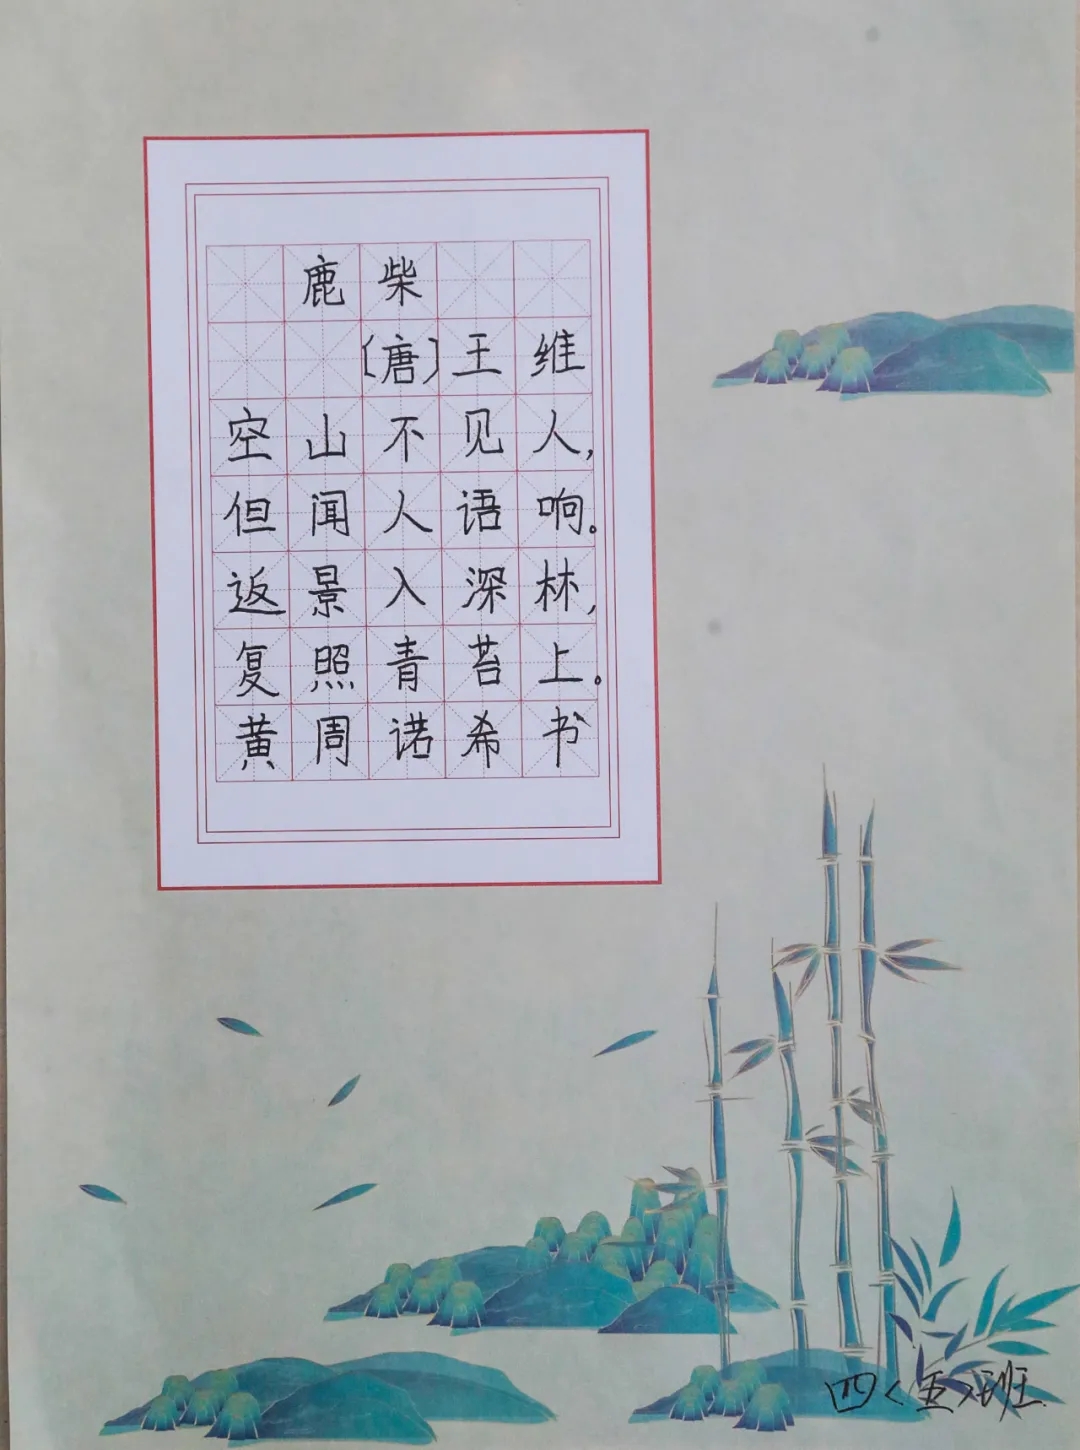 鹿柴
〔唐〕王维
空山不见人，
但闻人语响。
返景入深林，
复照青苔上。
黄周诺希书
四〈五〉班